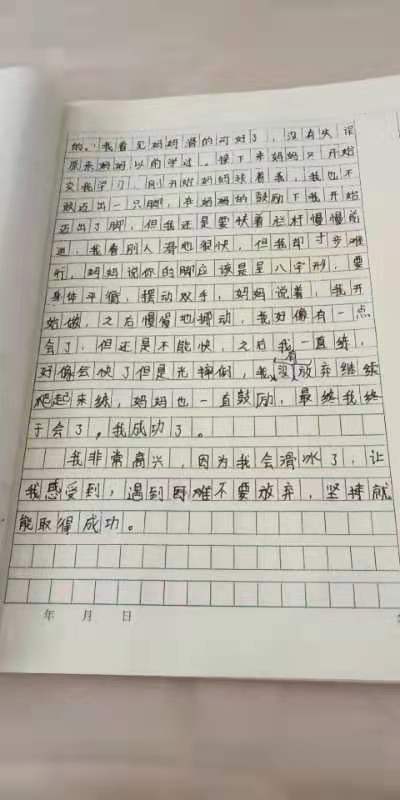 的。我看见妈妈滑的可好了，没有失误
原来妈妈以前学过。接下来妈妈开始
交我学习，刚开始妈妈扶着我，我也不
敢迈出一只脚，在妈妈的鼓励下我开始
迈出了脚，但我还是要扶着栏杆慢慢前
进，我看别人滑地很快，但我却寸步难
行，妈妈说你的脚应该是呈八字形，要
身体平衡，摆动双手，妈妈说着，我开
始做，之后慢慢地挪动，我好像有一点
会了，但还是不能快，之后我一直练，
好像会快了但是光摔倒，我没有放弃继续
爬起来练，妈妈也一直鼓励，最终我终
于会了，我成功了。
我非常高兴，因为我会滑冰了，让
我感受到，遇到困难不要放弃，坚持就
能取得成功。
年 月 日